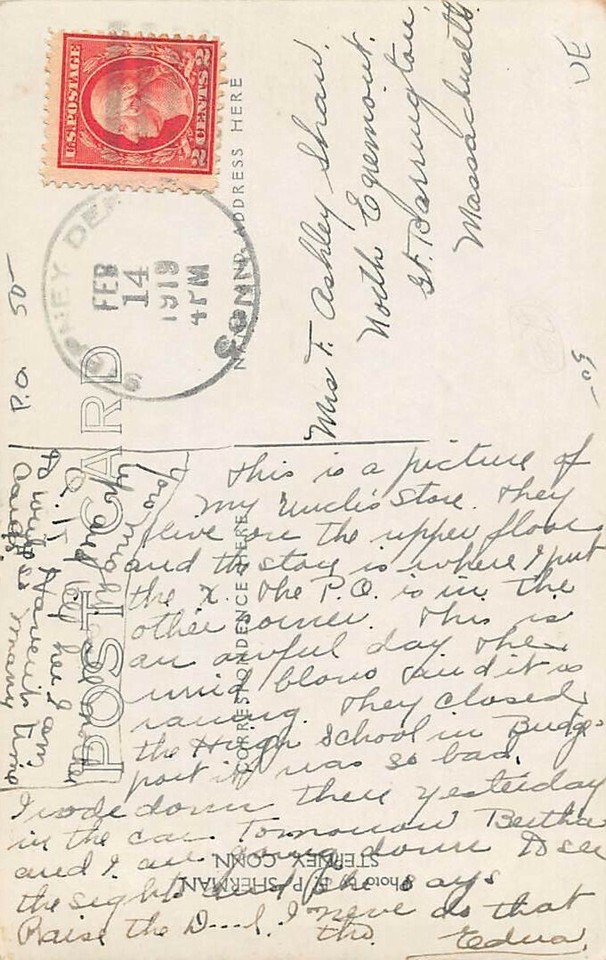 U.S. POSTAGE
2 CENTS 2
STEPNEY DEPOT
FEB
14
1919
4 PM
CONN.
NAME AND ADDRESS HERE
Mrs F. Ashley Shaw.
North Egremont.
Gt. Barrington,
Massachusetts.
P.O. 50-
POST CARD
CORRESPONDENCE HERE
This is a picture of
my Uncle's Store. They
live on the upper floor
and the is where I put
the X. The P.O. is in the
other corner. This is
an awful day. The
wind blows and it is
raining. They closed
the High School in Bridge-
port it was so bad.
I rode down there yesterday
in the car. Tomorrow Bertha
and I are going down to see
the sights and she says
Raise the D----l. I never do that
tho. Edna.
You might
up and
Haven't
to many
cards many times
Photo by E. P. SHERMAN.
STEPNEY, CONN.